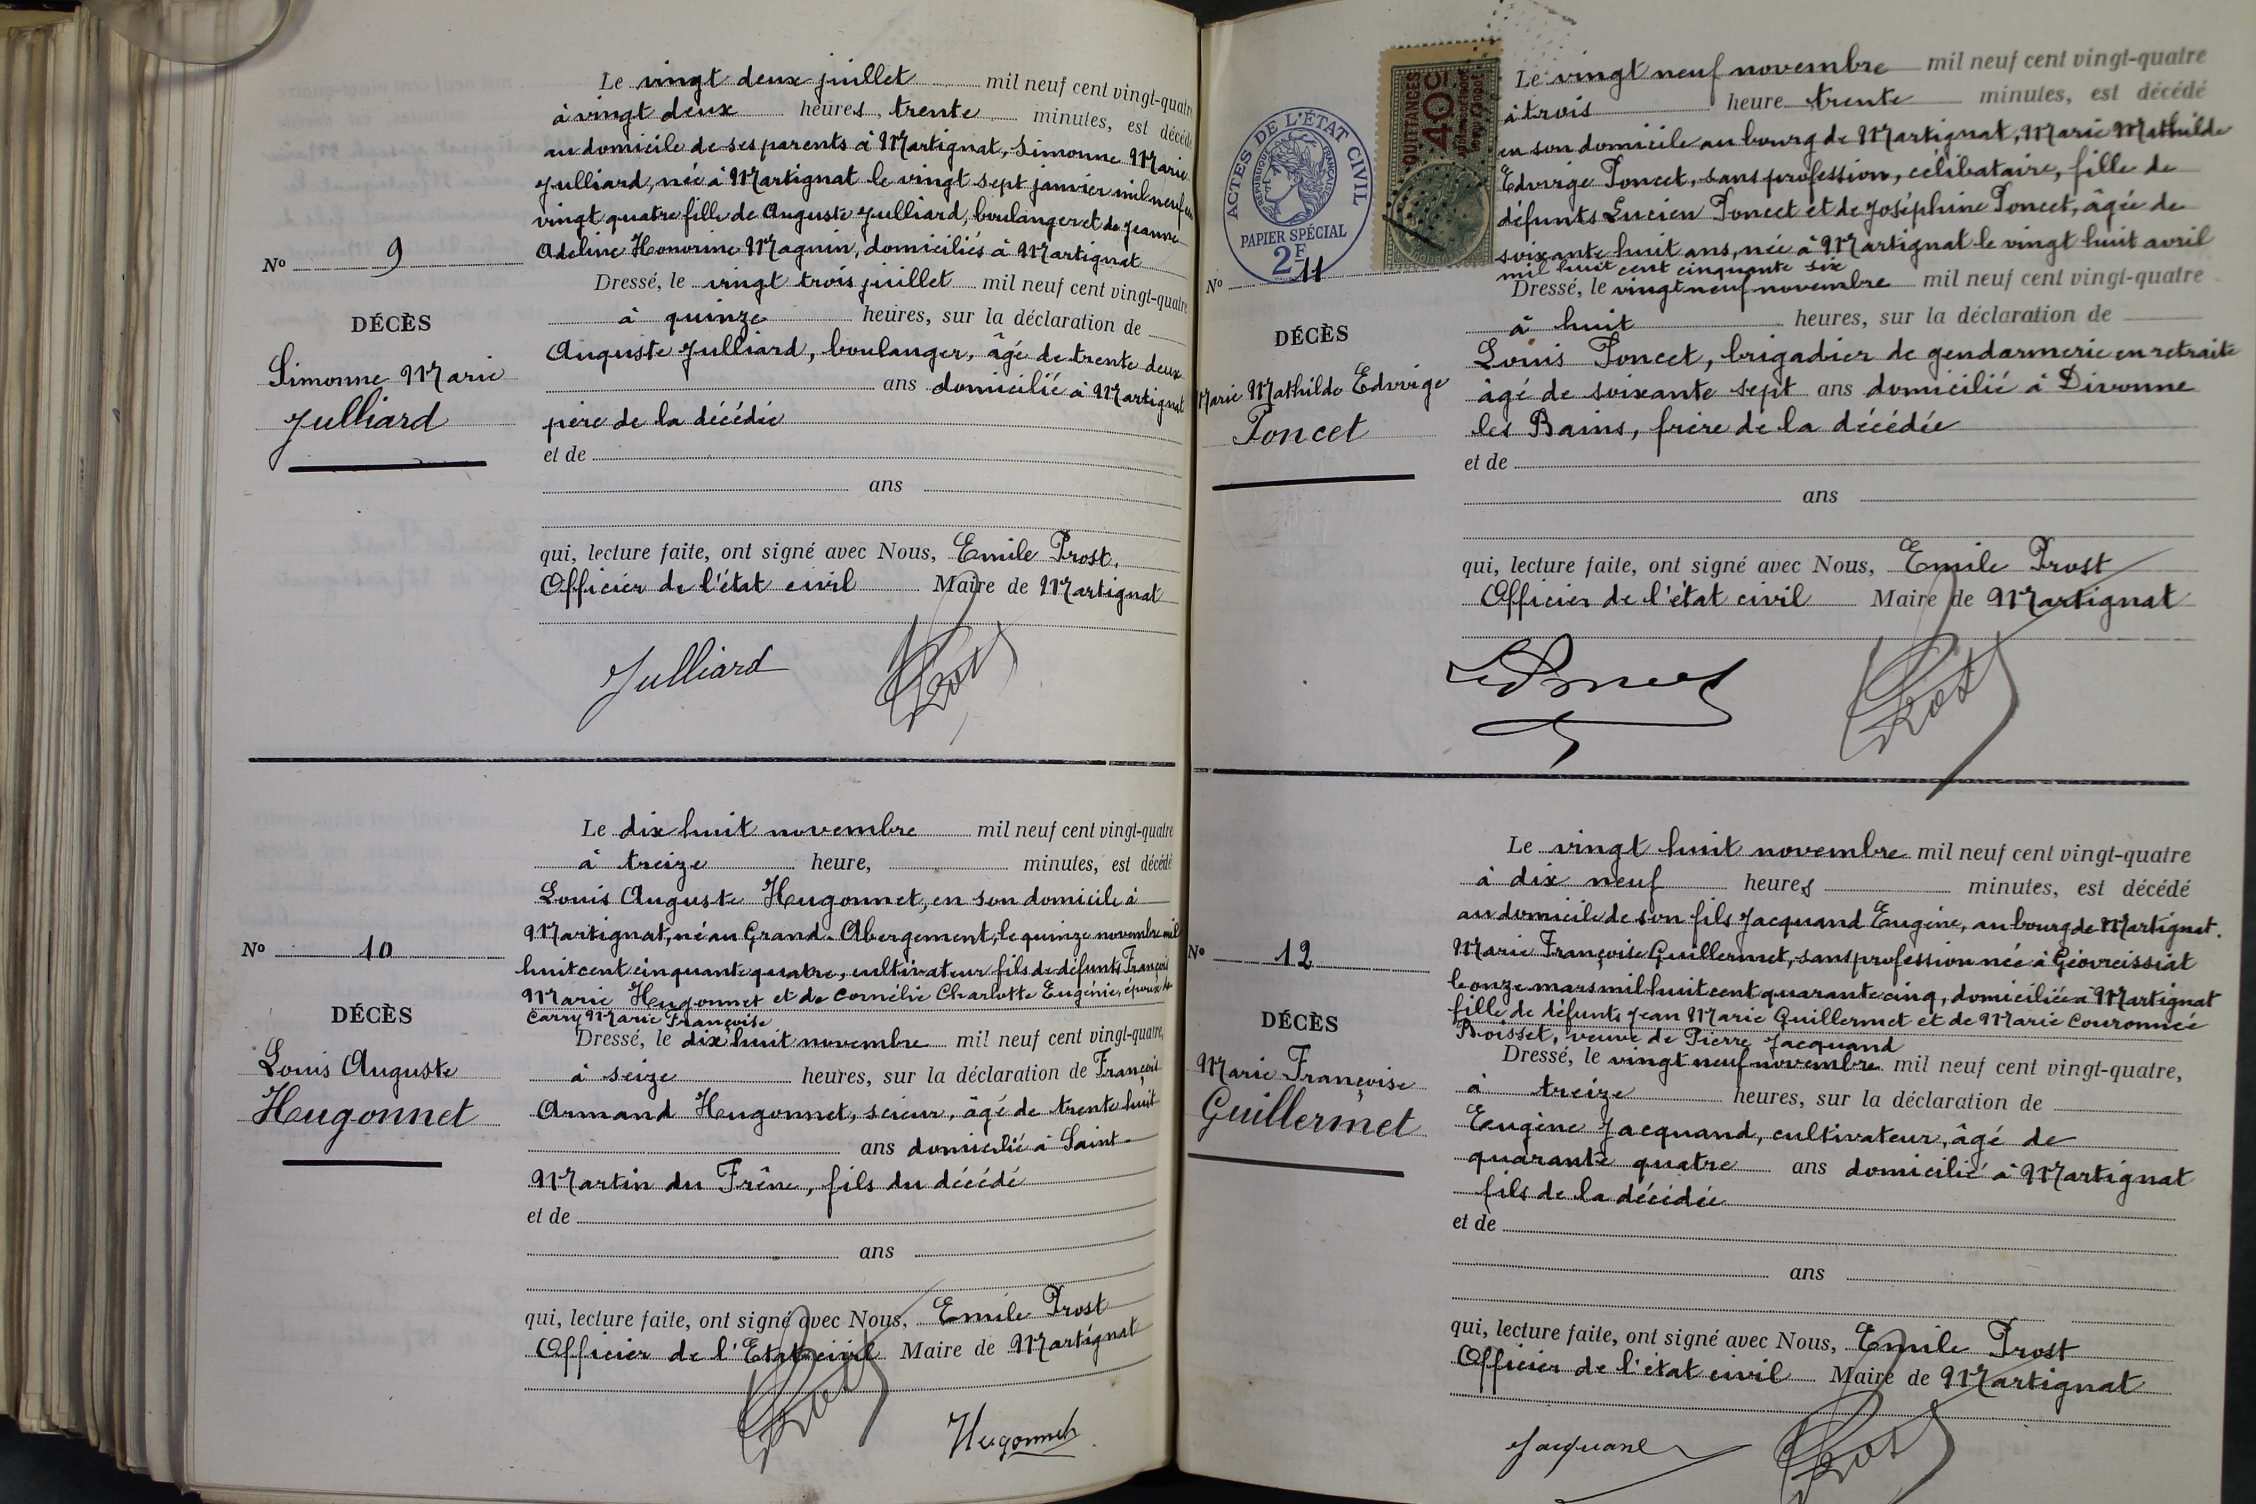 Le vingt deux juillet mil neuf cent vingt-quatre
à vingt deux heures, trente minutes, est décédé
au domicile de ses parents à Martignat, Simonne Marie
Julliard, née à Martignat le vingt sept janvier mil neuf cent
vingt quatre fille de Auguste Julliard, boulanger et de Jeanne
Adeline Honorine Magnin, domiciliés à Martignat
No 9
DÉCÈS
Simonne Marie
Julliard
Dressé, le vingt trois juillet mil neuf cent vingt-quatre
à quinze heures, sur la déclaration de
Auguste Julliard, boulanger, âgé de trente deux
ans domicilié à Martignat
père de la décédée
et de
ans
qui, lecture faite, ont signé avec Nous, Emile Prost,
Officier de l'état civil Maire de Martignat
Julliard Prost
Le dix huit novembre mil neuf cent vingt-quatre
à treize heure, minutes, est décédé
Louis Auguste Hugonnet, en son domicile à
Martignat, né au Grand-Abergement, le quinze novembre mil
huit cent cinquante quatre, cultivateur fils de défunts François
Marie Hugonnet et de Cornélie Charlotte Eugénie, époux de
Carry Marie Françoise
No 10
DÉCÈS
Louis Auguste
Hugonnet
Dressé, le dix huit novembre mil neuf cent vingt-quatre,
à seize heures, sur la déclaration de François
Armand Hugonnet, scieur, âgé de trente huit
ans domicilié à Saint
Martin du Frêne, fils du décédé
et de
ans
qui, lecture faite, ont signé avec Nous, Emile Prost
Officier de l'Etat civil Maire de Martignat
Prost Hugonnet
ACTES DE L'ÉTAT CIVIL
RÉPUBLIQUE FRANÇAISE
PAPIER SPÉCIAL
2F
QUITTANCES
40c
Le vingt neuf novembre mil neuf cent vingt-quatre
à trois heure trente minutes, est décédé
en son domicile au bourg de Martignat, Marie Mathilde
Edwige Poncet, sans profession, célibataire, fille de
défunts Lucien Poncet et de Joséphine Poncet, âgée de
soixante huit ans, née à Martignat le vingt huit avril
mil huit cent cinquante six
No 11
DÉCÈS
Marie Mathilde Edwige
Poncet
Dressé, le vingt neuf novembre mil neuf cent vingt-quatre
à huit heures, sur la déclaration de
Louis Poncet, brigadier de gendarmerie en retraite
âgé de soixante sept ans domicilié à Divonne
les Bains, frère de la décédée
et de
ans
qui, lecture faite, ont signé avec Nous, Emile Prost
Officier de l'état civil Maire de Martignat
Prost
Le vingt huit novembre mil neuf cent vingt-quatre
à dix neuf heures minutes, est décédé
au domicile de son fils Jacquand Eugène, au bourg de Martignat.
Marie Françoise Guillermet, sans profession née à Géovreissiat
le onze mars mil huit cent quarante cinq, domiciliée à Martignat
fille de défunts Jean Marie Guillermet et de Marie Couronnée
Boisset, veuve de Pierre Jacquand
No 12
DÉCÈS
Marie Françoise
Guillermet
Dressé, le vingt neuf novembre mil neuf cent vingt-quatre,
à treize heures, sur la déclaration de
Eugène Jacquand, cultivateur, âgé de
quarante quatre ans domicilié à Martignat
fils de la décédée
et de
ans
qui, lecture faite, ont signé avec Nous, Emile Prost
Officier de l'état civil Maire de Martignat
Jacquand Prost